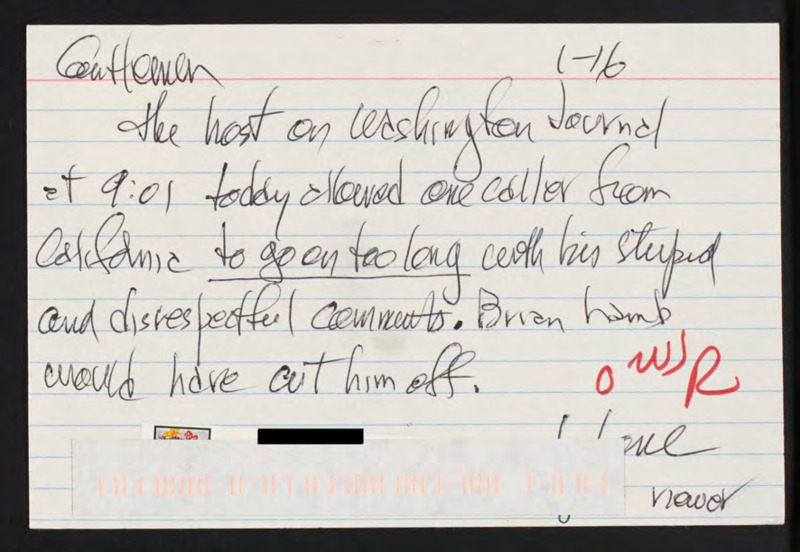 Gentlemen 1-16
the host on Washington Journal
at 9:01 today allowed one caller from
California to go on too long with his stupid
and disrespectful comments. Brian Lamb
would have cut him off.